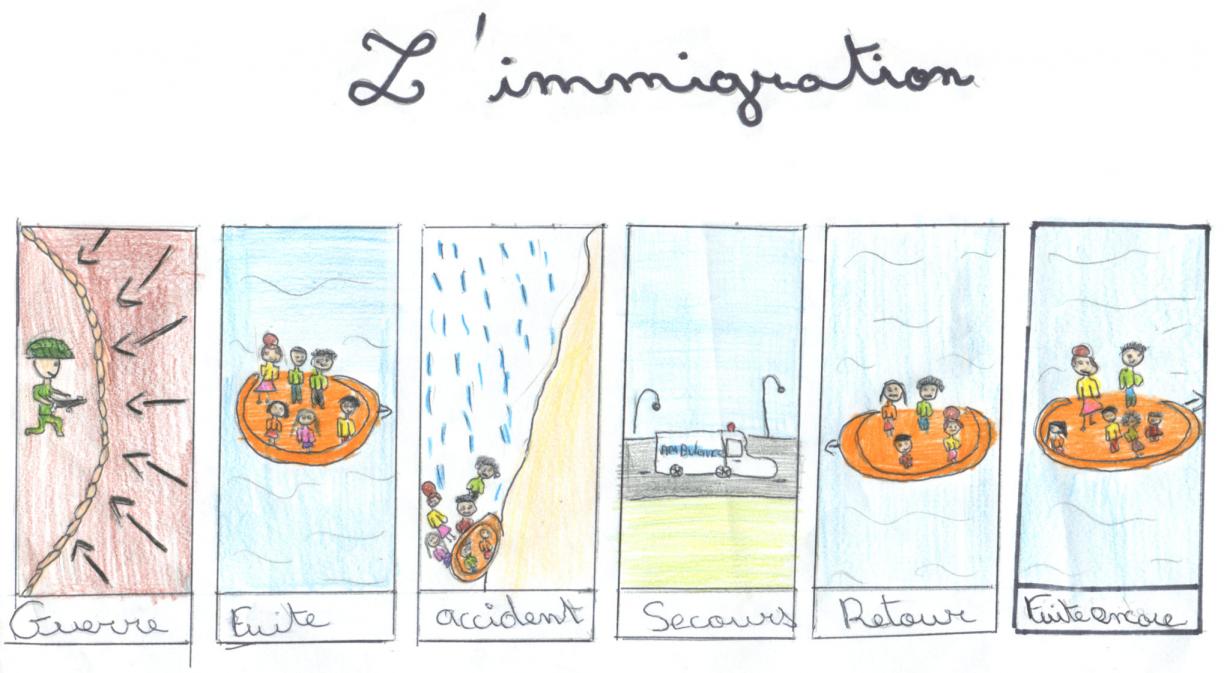 L'immigration
Guerre
Fuite
accident
Secours
Retour
Fuite encore
Ambulance